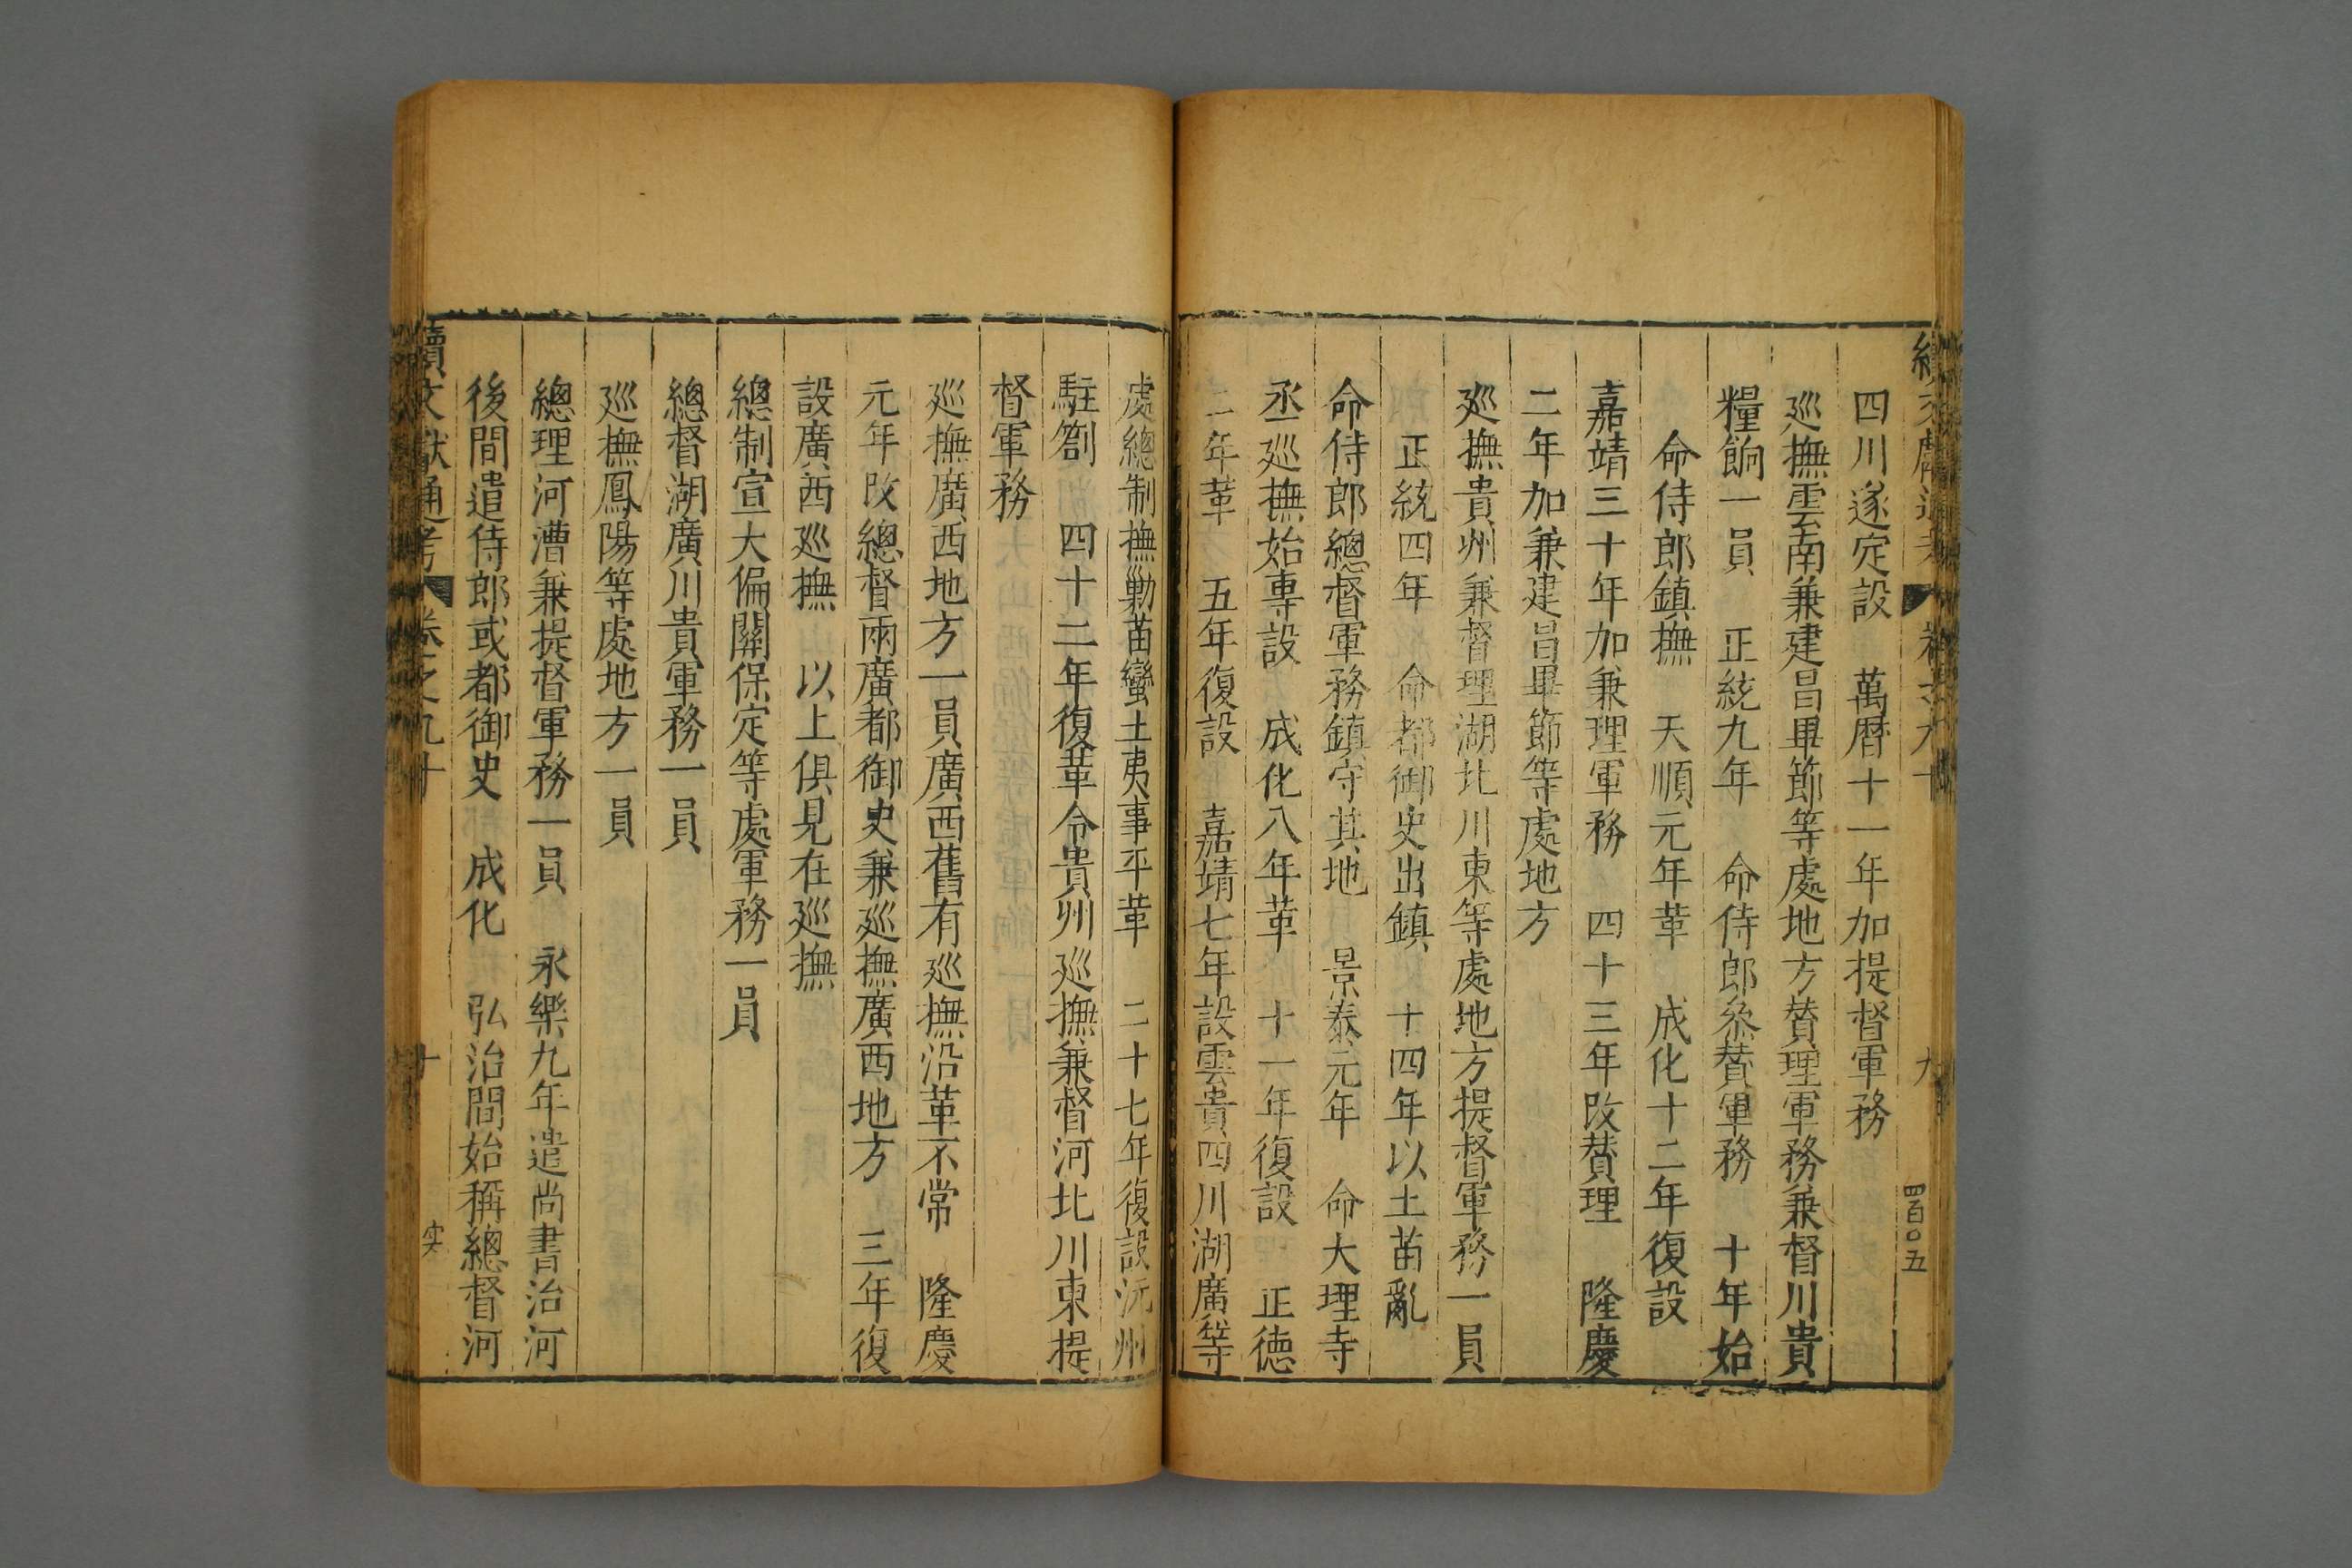 四川遂定設　萬曆十一年加提督軍務
巡撫雲南兼建昌畢節等處地方賛理軍務兼督川貴
糧餉一員　正統九年　命侍郎叅賛軍務　十年始
命侍郎鎮撫　天順元年革　成化十二年復設
嘉靖三十年加兼理軍務　四十三年改賛理　隆慶
二年加兼建昌畢節等處地方
巡撫貴州兼督理湖北川東等處地方提督軍務一員
正統四年　命都御史出鎮　十四年以土苗亂
命侍郎總督軍務鎮守其地　景泰元年　命大理寺
丞巡撫始專設　成化八年革　十一年復設　正德
二年革　五年復設　嘉靖七年設雲貴四川湖廣等
處總制撫勦苗蠻土夷事平革　二十七年復設沅州
駐劄　四十二年復革令貴州巡撫兼督河北川東提
督軍務
巡撫廣西地方一員廣西舊有巡撫沿革不常　隆慶
元年改總督兩廣都御史兼巡撫廣西地方　三年復
設廣西巡撫　以上俱見在巡撫
總制宣大偏關保定等處軍務一員
總督湖廣川貴軍務一員
巡撫鳳陽等處地方一員
總理河漕兼提督軍務一員　永樂九年遣尚書治河
後間遣侍郎或都御史　成化　弘治間始稱總督河
續文獻通考　卷之九十　十